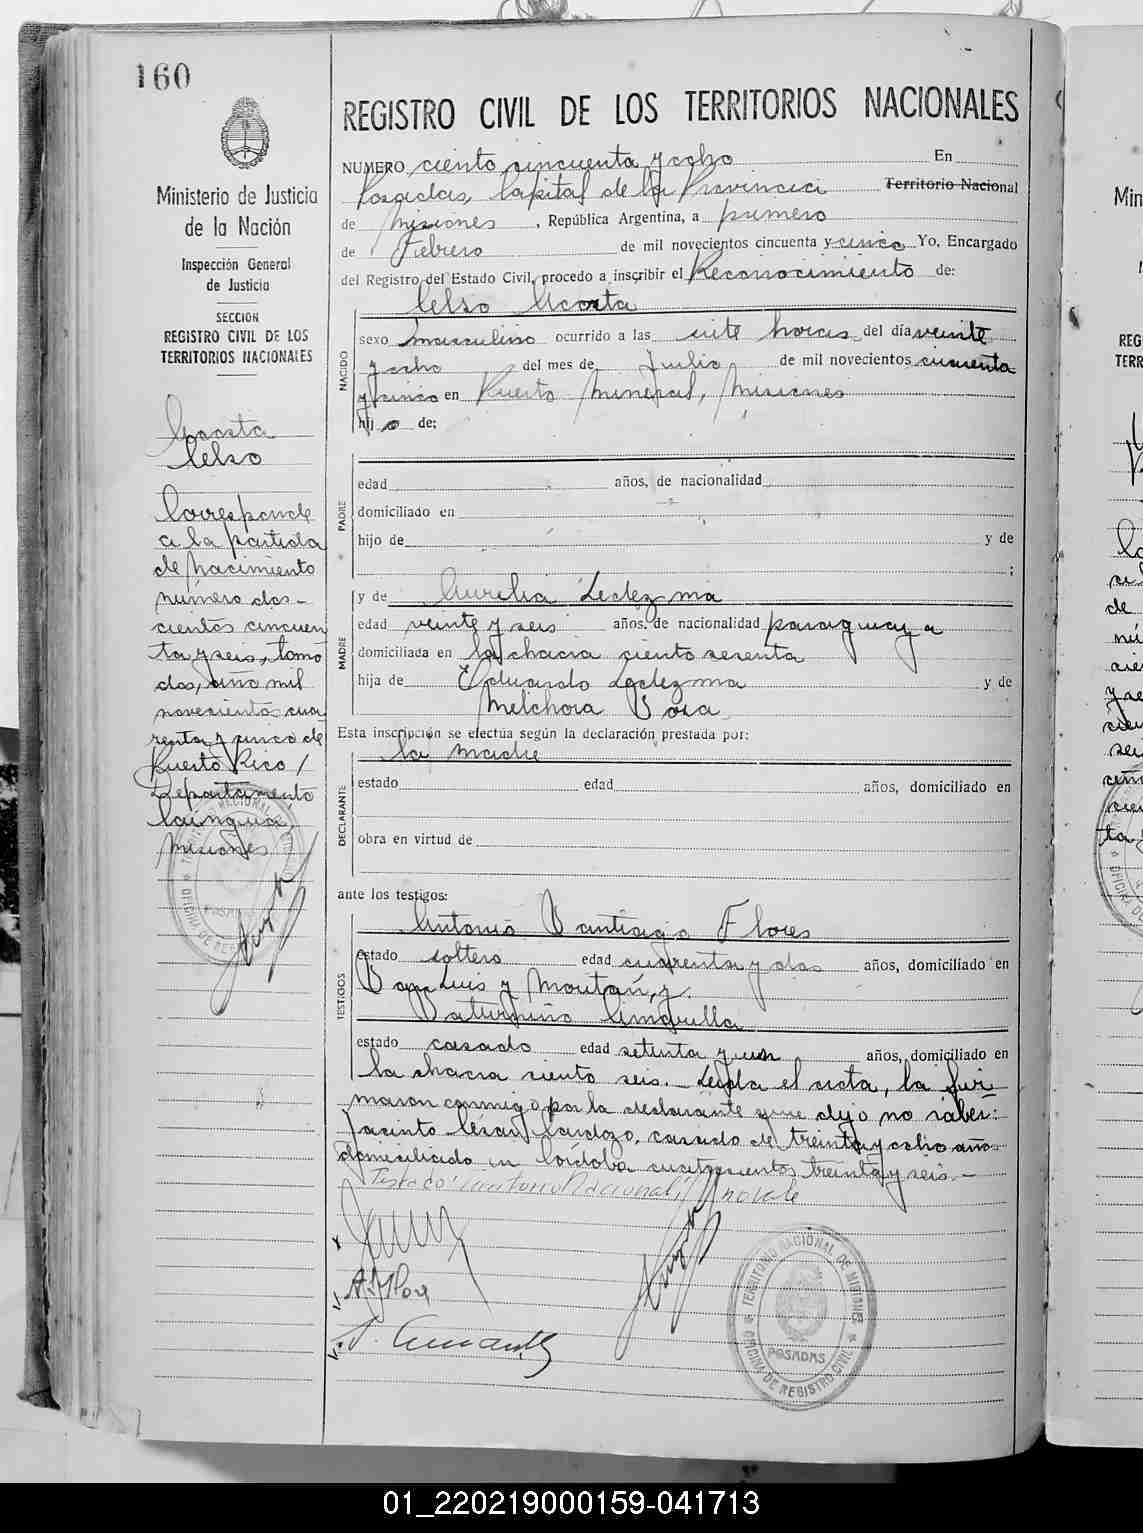 160
Ministerio de Justicia
de la Nación
Inspección General
de Justicia
SECCION
REGISTRO CIVIL DE LOS
TERRITORIOS NACIONALES
Acosta
Celso
Corresponde
a la partida
de nacimiento
número dos-
cientos cincuen
ta y seis, tomo
dos, año mil
novecientos cua
renta y cinco de
Puerto Rico /
Departamento
Cainguas,
Misiones
REGISTRO CIVIL DE LOS TERRITORIOS NACIONALES
NUMERO ciento cincuenta y ocho En
Posadas, Capital de la Provincia Territorio Nacional
de Misiones, República Argentina, a primero
de Febrero de mil novecientos cincuenta y cinco Yo, Encargado
del Registro del Estado Civil, procedo a inscribir el Reconocimiento de:
Celso Acosta
NACIDO
sexo masculino ocurrido a las siete horas del día veinte
y ocho del mes de Julio de mil novecientos cuarenta
y cinco en Puerto Mineral, Misiones
hijo de:
PADRE
edad años, de nacionalidad
domiciliado en
hijo de y de
;
MADRE
y de Aurelia Ledezma
edad veinte y seis años, de nacionalidad paraguaya
domiciliada en la chacra ciento sesenta
hija de Eduardo Ledezma y de
Melchora Sosa
Esta inscripción se efectúa según la declaración prestada por:
la madre
DECLARANTE
estado edad años, domiciliado en
obra en virtud de
ante los testigos:
TESTIGOS
Antonio Santiago Flores
estado soltero edad cuarenta y dos años, domiciliado en
San Luis y Moután, y
Saturnino
estado casado edad setenta y un años, domiciliado en
la chacra ciento seis.- Leida el acta, la fir
maron conmigo por la declarante que dijo no saber:
Jacinto Cesar Cardozo, casado de treinta y ocho años
domiciliado en Córdoba cuatrocientos treinta y seis.-
Testado: Territorio Nacional: no vale
A. Flores
TERRITORIO NACIONAL DE MISIONES
POSADAS
OFICINA DE REGISTRO CIVIL
01_220219000159-041713